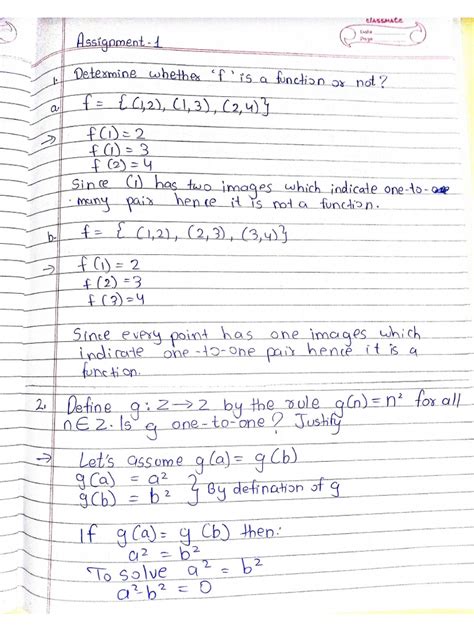 classmate
Date
Page
Assignment-1
1. Determine whether 'f' is a function or not?
a. f = { (1,2), (1,3), (2,4)}
→ f(1) = 2
f(1) = 3
f(2) = 4
Since (1) has two images which indicate one-to-
many pair hence it is not a function.
b. f = { (1,2), (2,3), (3,4)}
→ f(1) = 2
f(2) = 3
f(3) = 4
Since every point has one images which
indicate one-to-one pair hence it is a
function.
2. Define g: Z→Z by the rule g(n) = n² for all
n∈Z. Is g one-to-one? Justify
→ Let's assume g(a) = g(b)
g(a) = a²
g(b) = b² } By defination of g
If g(a) = g(b) then:
a² = b²
To solve a² = b²
a²-b² = 0